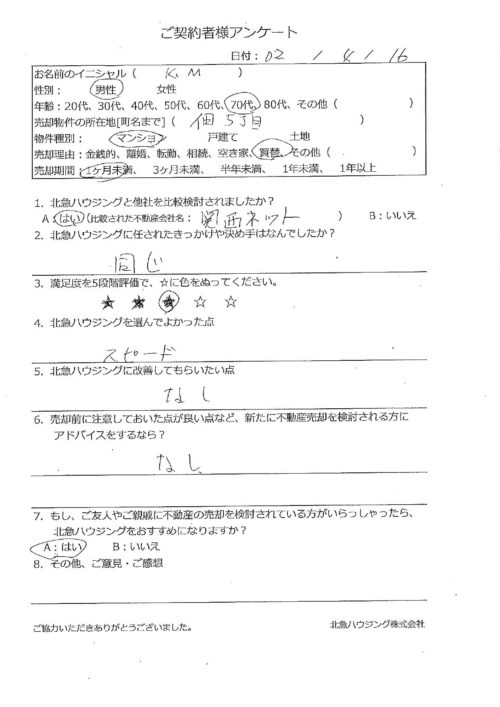 ご契約者様アンケート
日付：02 / 4 / 16
お名前のイニシャル（ K.M ）
性別： 男性 女性
年齢：20代、30代、40代、50代、60代、70代、80代、その他（ ）
売却物件の所在地[町名まで]（ 佃5丁目 ）
物件種別： マンション 戸建て 土地
売却理由：金銭的、離婚、転勤、相続、空き家、買替、その他（ ）
売却期間：1ヶ月未満、 3ヶ月未満、 半年未満、 1年未満、 1年以上
1．北急ハウジングと他社を比較検討されましたか？
A：はい（比較された不動産会社名： 関西ネット ） B：いいえ
2．北急ハウジングに任されたきっかけや決め手はなんでしたか？
同じ
3．満足度を5段階評価で、☆に色をぬってください。
★ ★ ★ ☆ ☆
4．北急ハウジングを選んでよかった点
スピード
5．北急ハウジングに改善してもらいたい点
なし
6．売却前に注意しておいた点が良い点など、新たに不動産売却を検討される方に
アドバイスをするなら？
なし
7．もし、ご友人やご親戚に不動産の売却を検討されている方がいらっしゃったら、
北急ハウジングをおすすめになりますか？
A：はい B：いいえ
8．その他、ご意見・ご感想
ご協力いただきありがとうございました。
北急ハウジング株式会社